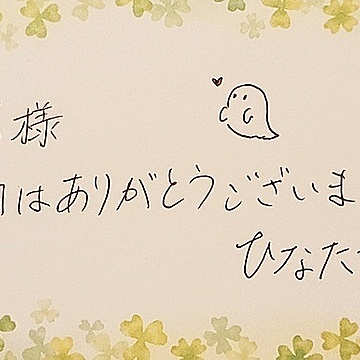 様
はありがとうございま
ひなた